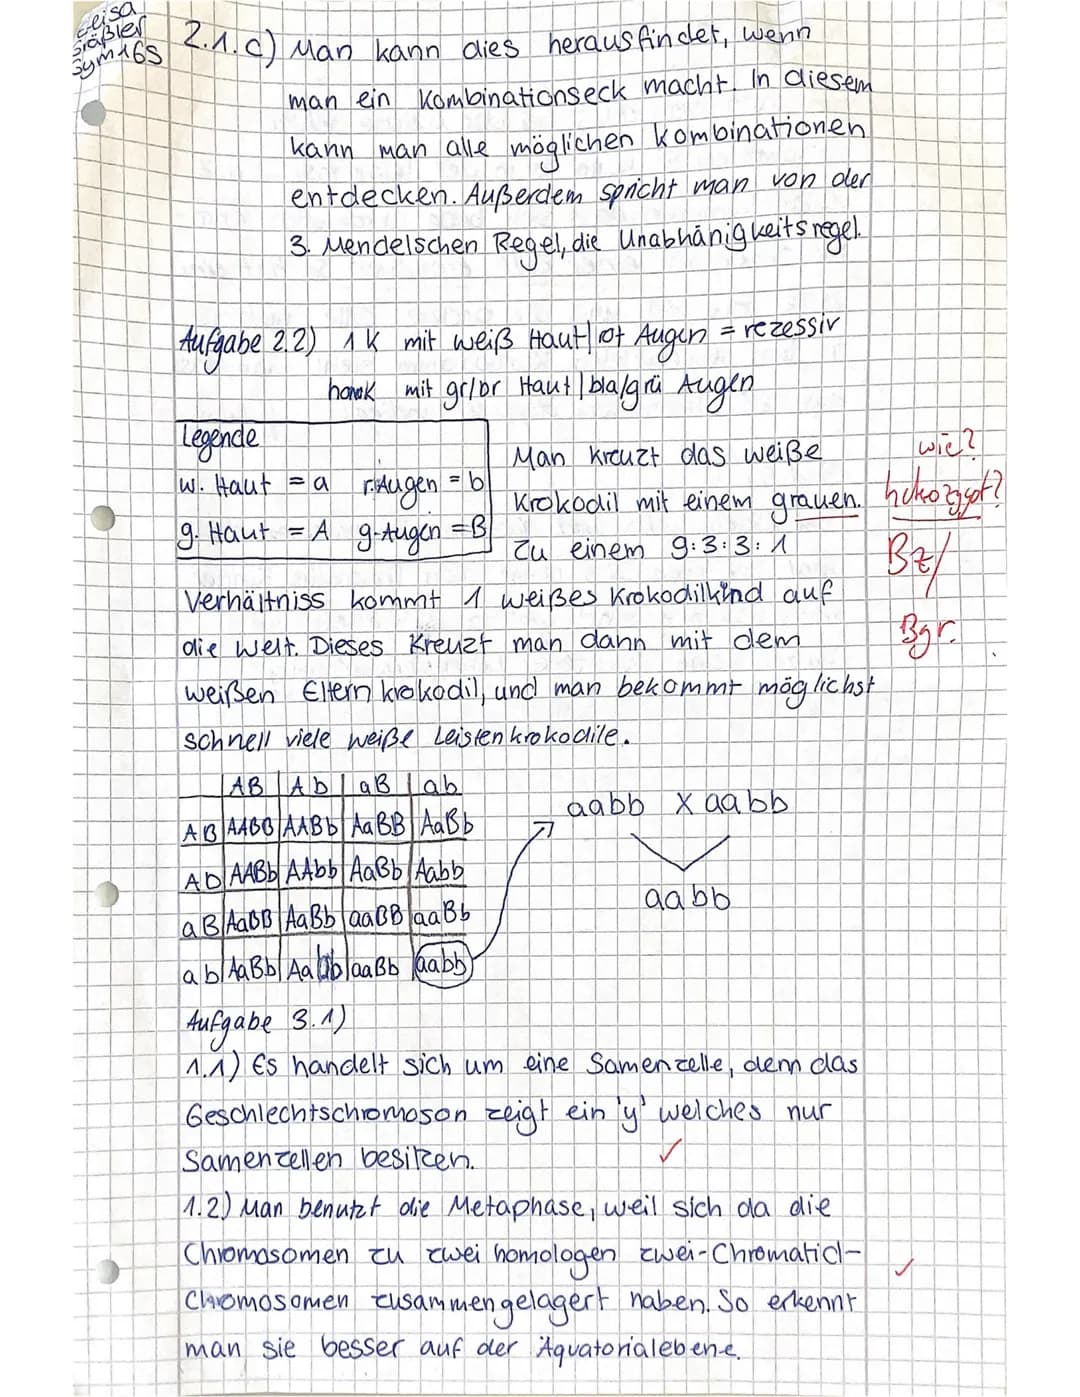 2.1.c) Man kann dies herausfindet, wenn
man ein Kombinationseck macht. In diesem
kann man alle möglichen Kombinationen
entdecken. Außerdem spricht man von der
3. Mendelschen Regel, die Unabhänigkeitsregel.
Aufgabe 2.2) 1 K mit weiß Haut/rot Augen = rezessiv
mit gr/br Haut/bla/grü Augen
Legende
w. Haut = a r.Augen = b
g. Haut = A g-Augen = B
Man kreuzt das weiße wie?
Krokodil mit einem grauen. heterozygot?
Zu einem 9:3:3:1 Bz/
Verhältniss kommt 1 weißes Krokodilkind auf
die Welt. Dieses Kreuzt man dann mit dem Bgr.
weißen Elternkrokodil, und man bekommt möglichst
schnell viele weiße Leistenkrokodile.
AB Ab aB ab
AB AABB AABb AaBB AaBb
Ab AABb AAbb AaBb Aabb
aB AaBB AaBb aaBB aaBb
ab AaBb Aabb aaBb aabb
aabb X aabb
aabb
Aufgabe 3.1)
1.1) Es handelt sich um eine Samenzelle, denn das
Geschlechtschromoson zeigt ein 'y' welches nur
Samenzellen besitzen.
1.2) Man benutzt die Metaphase, weil sich da die
Chromosomen zu zwei homologen zwei-Chromatid-
Chromosomen zusammengelagert haben. So erkennt
man sie besser auf der Äquatorialebene.